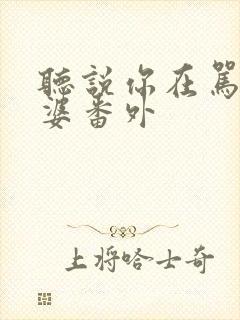 聽說你在罵
婆番外
上将哈士奇